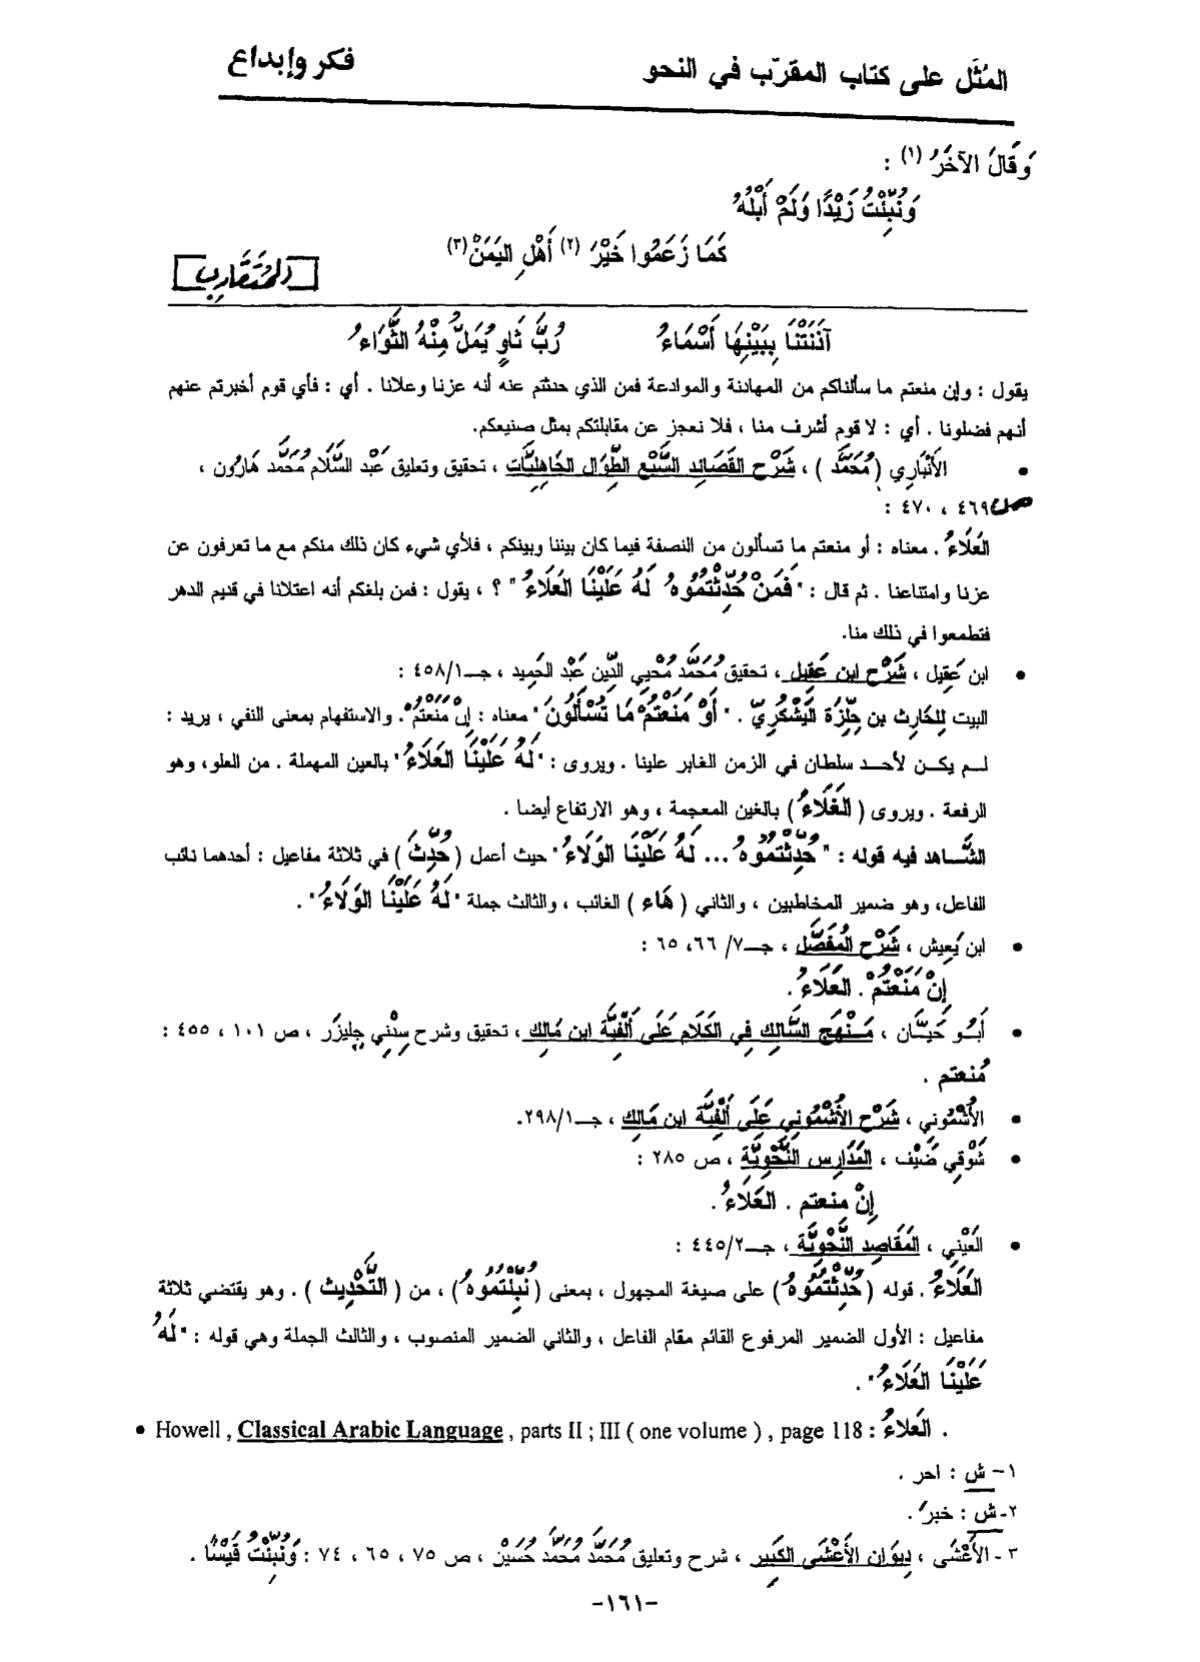 المُثَل على كتاب المقرّب في النحو فكر وإبداع
وَقَالَ الآخَرُ (١) :
وَنُبِّئْتُ زَيْدًا وَلَمْ أَبْلُهُ
كَمَا زَعَمُوا خَيْرَ (٢) أَهْلِ اليَمَنْ (٣)
[المُتَقَارِب]
آذَنَتْنَا بِبَيْنِهَا أَسْمَاءُ رُبَّ ثَاوٍ يُمَلُّ مِنْهُ الثَّوَاءُ
يقول : وإن منعتم ما سألناكم من المهادنة والموادعة فمن الذي حدثتم عنه أنه عزنا وعلانا . أي : فأي قوم أخبرتم عنهم
أنهم فضلونا . أي : لا قوم أشرف منا ، فلا نعجز عن مقابلتكم بمثل صنيعكم.
• الأَنْبَارِي (مُحَمَّد ) ، شَرْح القَصَائِد السَّبْع الطِّوَال الجَاهِلِيَّات ، تحقيق وتعليق عَبْد السَّلَام مُحَمَّد هَارُون ،
ص ٤٦٩ ، ٤٧٠ :
العَلَاءُ . معناه : أو منعتم ما تسألون من النصفة فيما كان بيننا وبينكم ، فلأي شيء كان ذلك منكم مع ما تعرفون عن
عزنا وامتناعنا . ثم قال : "فَمَنْ حُدِّثْتُمُوهُ لَهُ عَلَيْنَا العَلَاءُ " ؟ ، يقول : فمن بلغكم أنه اعتلانا في قديم الدهر
فتطمعوا في ذلك منا.
• ابن عَقِيل ، شَرْح ابن عَقِيل ، تحقيق مُحَمَّد مُحْيِي الدِّين عَبْد الحَمِيد ، جــ٤٥٨/١ :
البيت لِلحَارِث بن حِلِّزَة اليَشْكُرِيّ . " أَوْ مَنَعْتُمْ مَا تُسْأَلُونَ " معناه : إِنْ مَنَعْتُمْ". والاستفهام بمعنى النفي ، يريد :
لــم يكــن لأحــد سلطان في الزمن الغابر علينا . ويروى : "لَهُ عَلَيْنَا العَلَاءُ " بالعين المهملة . من العلو، وهو
الرفعة . ويروى ( الغَلَاءُ ) بالغين المعجمة ، وهو الارتفاع أيضا .
الشَّــاهد فيه قوله : " حُدِّثْتُمُوهُ ... لَهُ عَلَيْنَا الوَلَاءُ " حيث أعمل ( حُدِّثَ ) في ثلاثة مفاعيل : أحدهما نائب
الفاعل، وهو ضمير المخاطبين ، والثاني ( هَاء ) الغائب ، والثالث جملة "لَهُ عَلَيْنَا الوَلَاءُ " .
• ابن يَعِيش ، شَرْح المُفَصَّل ، جــ٧/ ٦٦، ٦٥ :
إِنْ مَنَعْتُمْ . العَلَاءُ .
• أَبُــو حَيــَّان ، مَــنْهَج السَّالِك فِي الكَلَام عَلَى أَلْفِيَّة ابن مَالِك ، تحقيق وشرح سِدْنِي جِلِيزَر ، ص ١٠١ ، ٤٥٥ :
مُنعتم .
• الأُشْمُونِي ، شَرْح الأُشْمُونِي عَلَى أَلْفِيَّة ابن مَالِك ، جــ٢٩٨/١.
• شَوْقِي ضَيْف ، المَدَارِس النَّحْوِيَّة ، ص ٢٨٥ :
إِنْ منعتم . العَلَاءُ .
• العَيْنِي ، المَقَاصِد النَّحْوِيَّة ، جــ٤٤٥/٢ :
العَلَاءُ . قوله ( حُدِّثْتُمُوهُ ) على صيغة المجهول ، بمعنى ( نُبِّئْتُمُوهُ ) ، من ( التَّحْدِيث ) . وهو يقتضي ثلاثة
مفاعيل : الأول الضمير المرفوع القائم مقام الفاعل ، والثاني الضمير المنصوب ، والثالث الجملة وهي قوله : "لَهُ
عَلَيْنَا العَلَاءُ " .
• Howell , Classical Arabic Language , parts II ; III ( one volume ) , page 118 : العَلاءُ .
١- ش : احر .
٢- ش : خبرَ .
٣- الأَعْشَى ، دِيوَان الأَعْشَى الكَبِير ، شرح وتعليق مُحَمَّد مُحَمَّد حُسَيْن ، ص ٧٥ ، ٦٥ ، ٧٤ : وَنُبِّئْتُ قَيْسًا .
-١٦١-